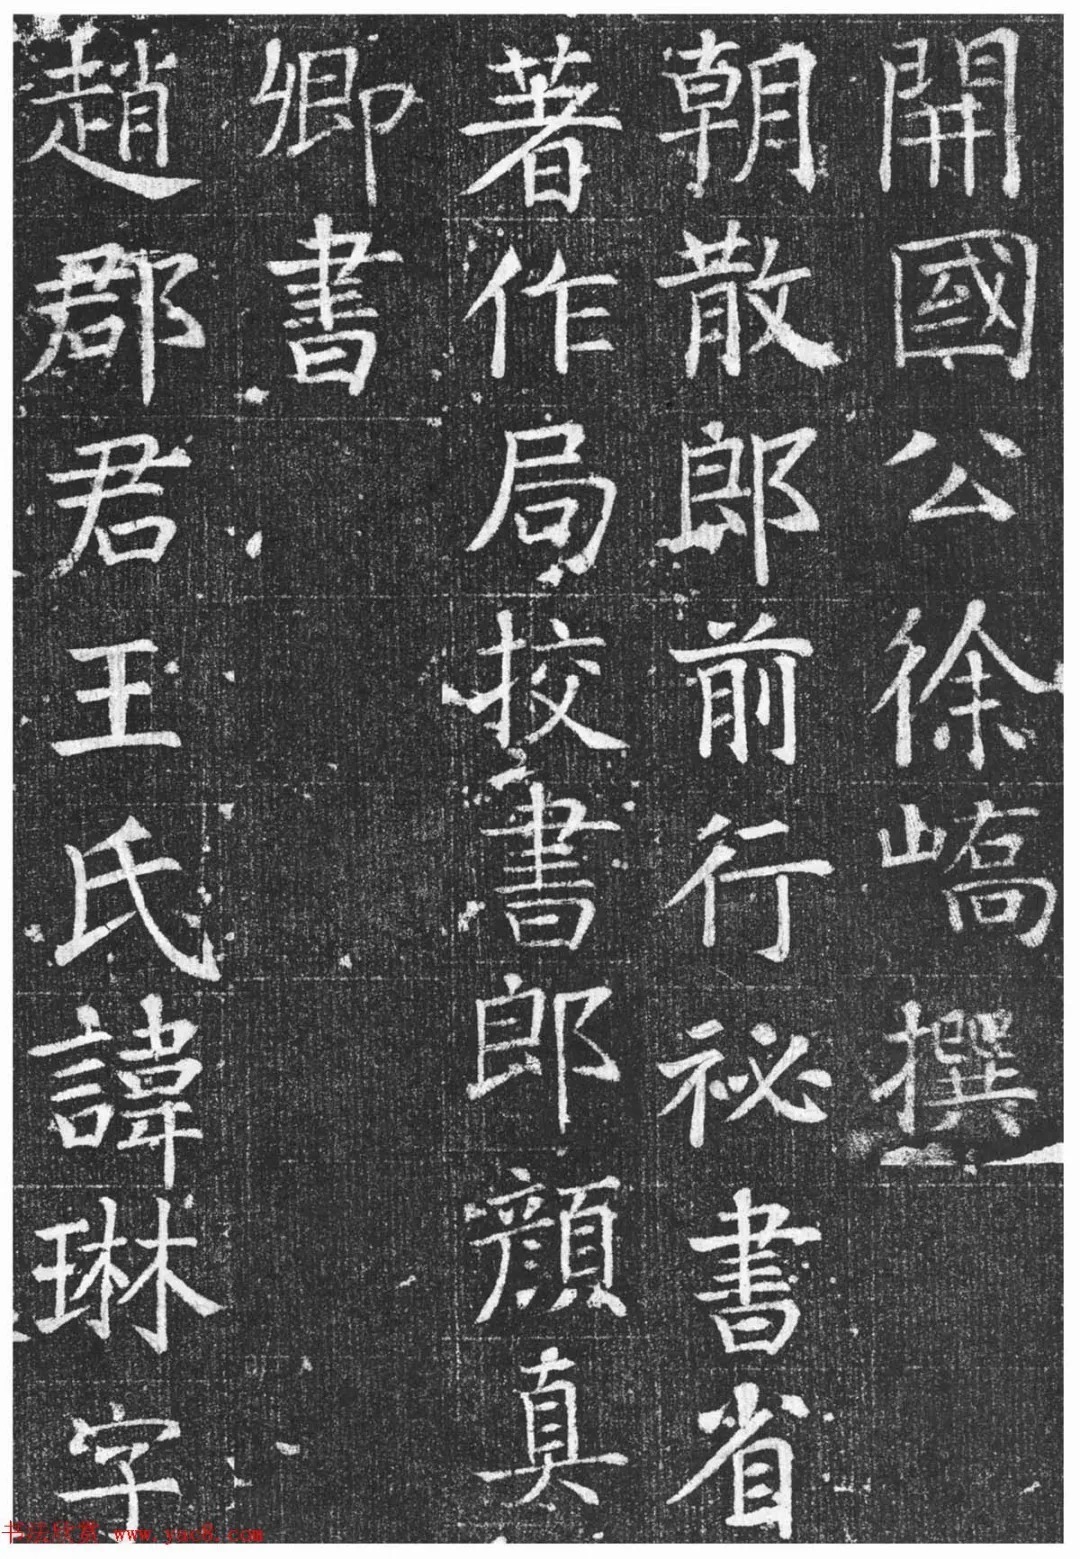 開國公徐嶠撰
朝散郎前行祕書省
著作局校書郎顏真
卿書
趙郡君王氏諱琳字
书法欣赏 www.yac8.com